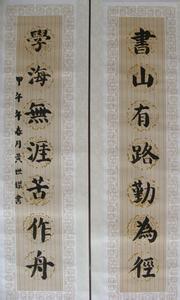 書山有路勤為徑
學海無涯苦作舟
甲午年春月黄世璨書